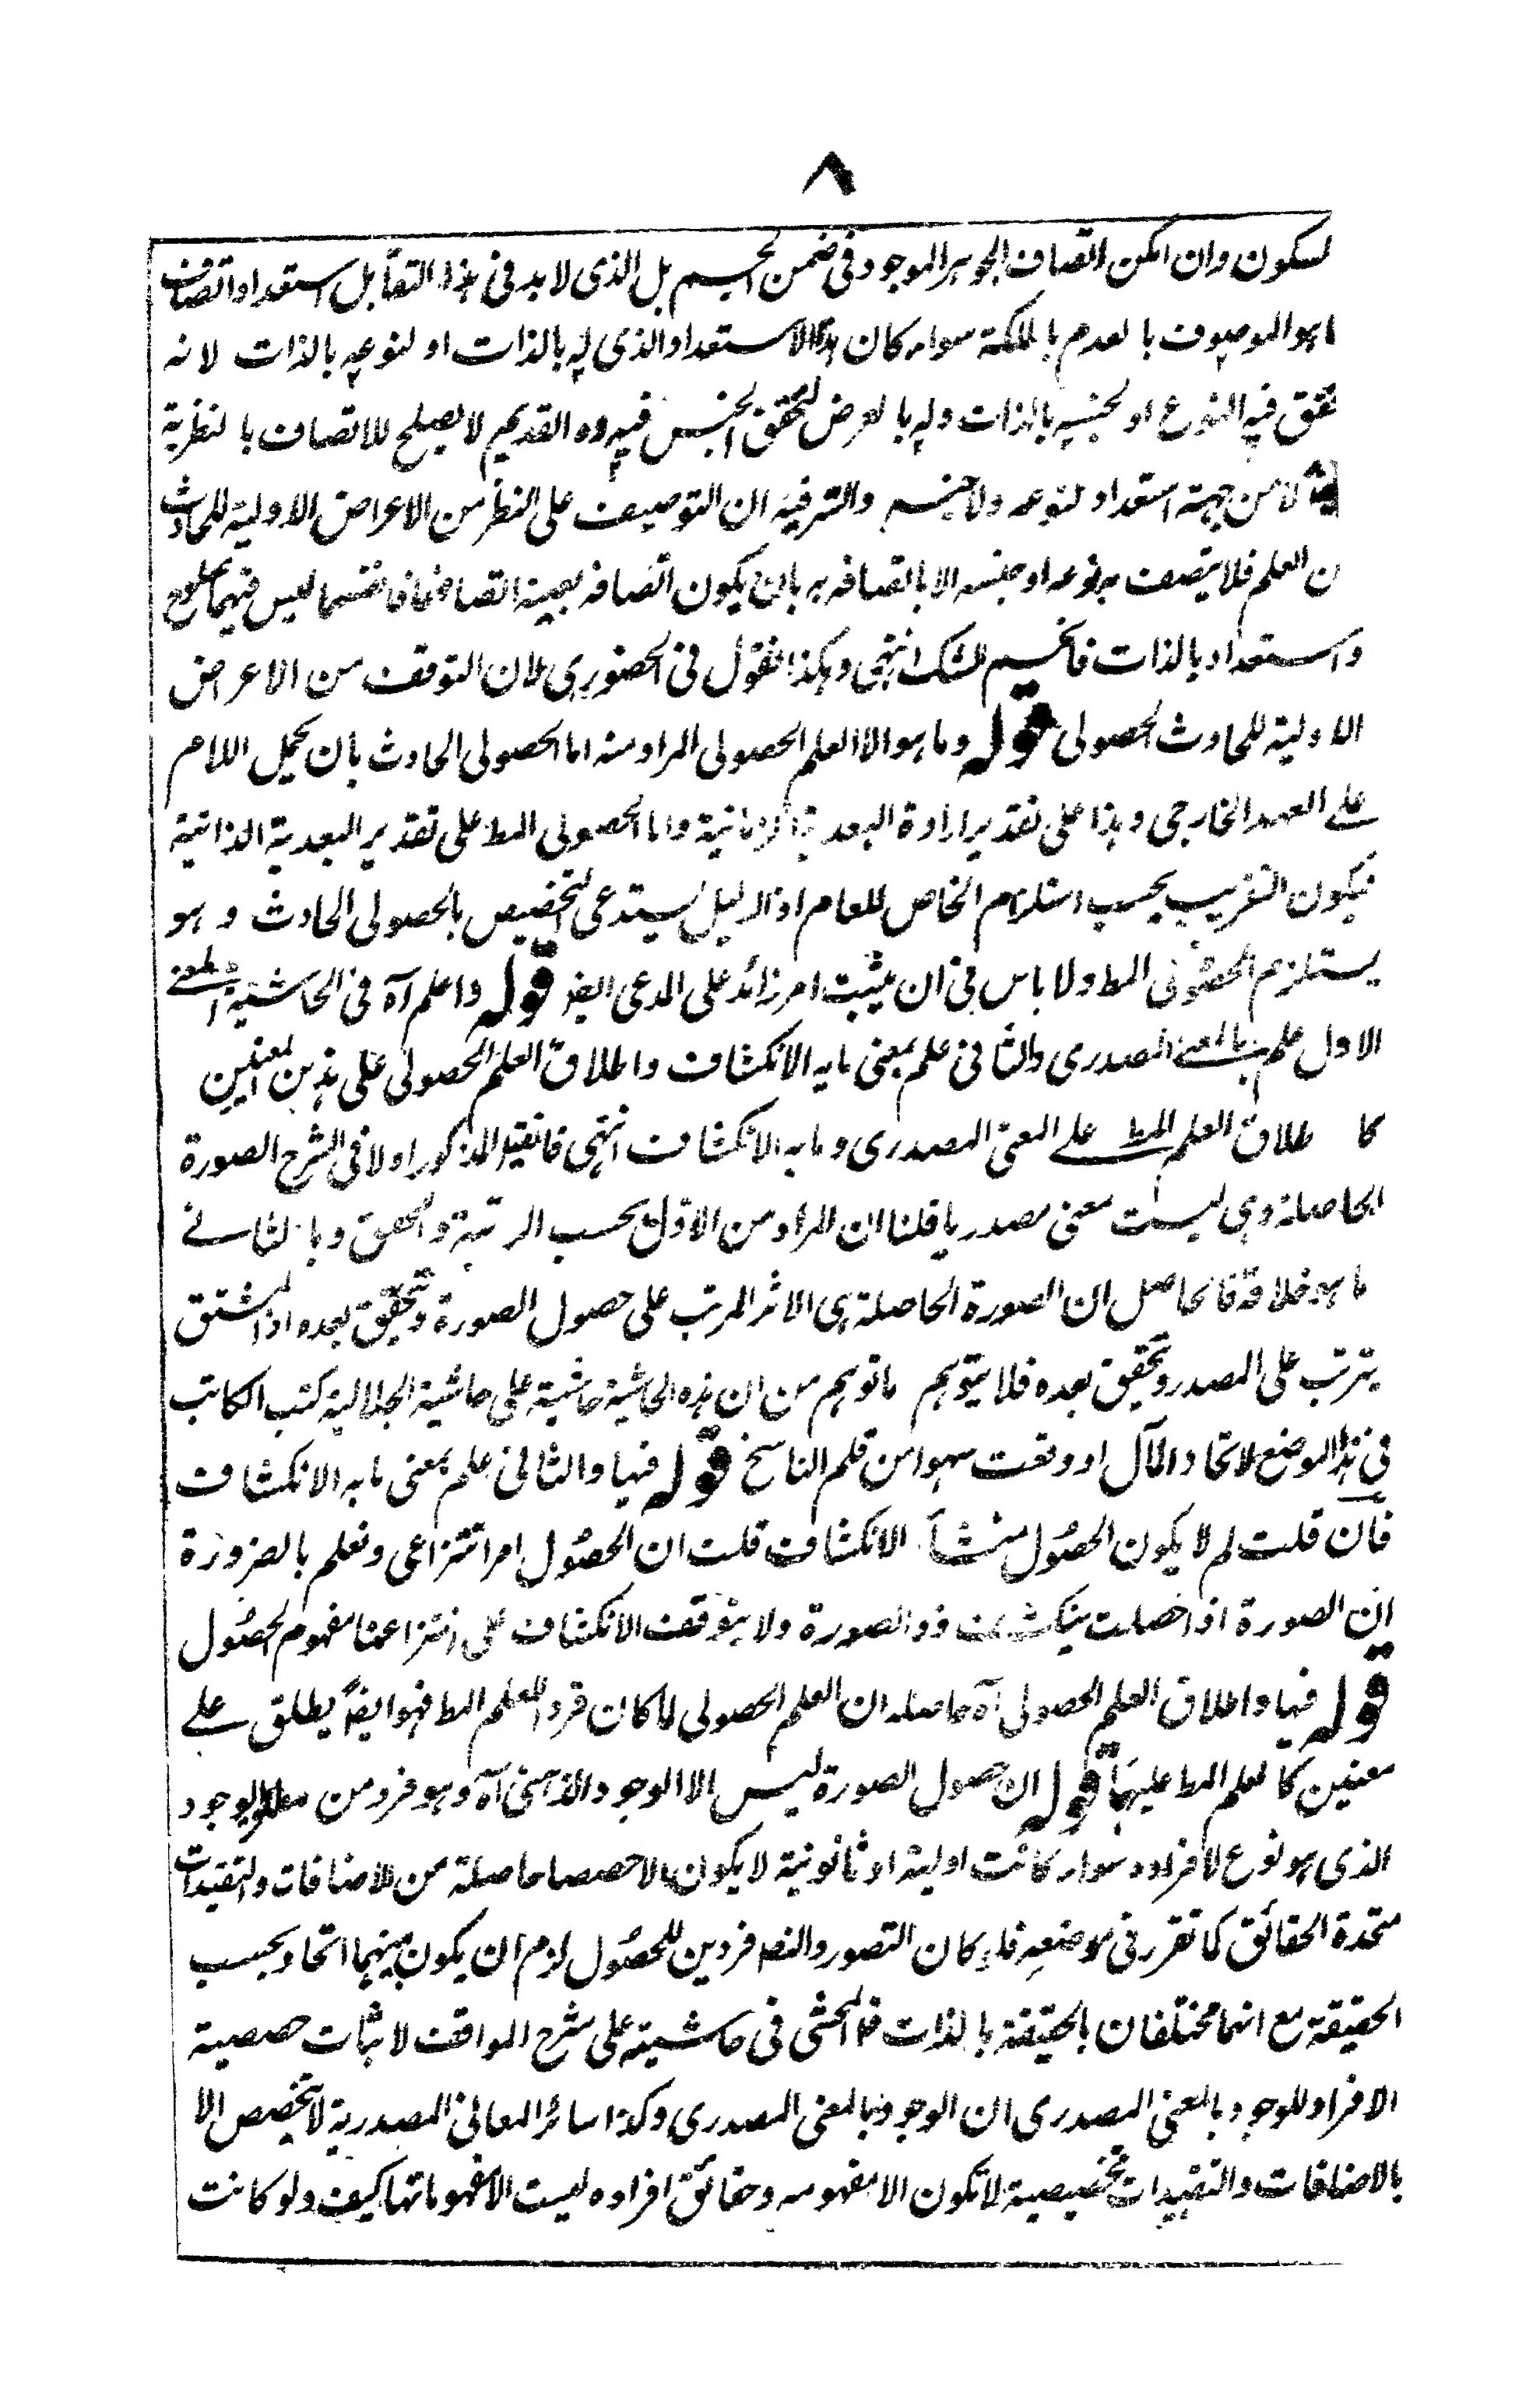 ٨
لسكون وان امكن اتصاف الجوهر الموجود فى ضمن الجسم بل الذى لا بد فى هذا التقابل استعداد اتصاف
ا هو الموصوف بالعدم بالملكة سواء كان هذا الاستعداد الذى له بالذات او لنوعه بالذات لانه
تحقق فيه النوع او لجنسه بالذات وله بالعرض لتحقق الجنس فيه وه القديم لا يصلح للاتصاف بالنظرية
لا من جهة استعداد لنوعه ولا جنسه والسر فيه ان التوصيف على النظر من الاعراض الاولية للحادث
ن العلم فلا يتصف به نوعه او جنسه الا باتصافه به بان يكون اتصافه بعينه اتصافهما فانفسهما ليس فيهما صلوح
واستعداد بالذات فانحسم الشك انتهى وهكذا نقول فى الحضورى لان التوقف من الاعراض
الاولية للحادث الحصولى قوله وما هو الا العلم الحصولى المراد منه اما الحصولى الحادث بان يحمل اللام
على العهد الخارجى وهذا على تقدير ارادة البعدية الزمانية واما الحصولى المط على تقدير البعدية الذاتية
فيكون التقريب بحسب استلزام الخاص للعام اذ الدليل يستدعى التخصيص بالحصولى الحادث وهو
يستلزم الحصولى المط ولا باس فى ان يثبت امر زائد على المدعى ايضا قوله واعلم آه فى الحاشية المعنى
الاول علم بالمعنى المصدرى والثانى علم بمعنى ما به الانكشاف واطلاق العلم الحصولى على هذين المعنيين
كاطلاق العلم المط على المعنى المصدرى وما به الانكشاف انتهى فان قيل المذكور اولا فى الشرح الصورة
الحاصلة وهى ليست معنى مصدريا قلنا ان المراد من الاول بحسب الرتبة والتحقق وبالثانى
ما هو خلافه فالحاصل ان الصورة الحاصلة هى الاثر المرتب على حصول الصورة وتحقق بعده اذ المشتق
يترتب على المصدر وتحقق بعده فلا يتوهم ما توهم من ان هذه الحاشية حاشية على حاشية الجلالية كتب الكاتب
فى هذا الموضع لاتحاد المآل او وقعت سهوا من قلم الناسخ قوله فيها والثانى علم بمعنى ما به الانكشاف
فان قلت لم لا يكون الحصول منشأ الانكشاف قلت ان الحصول امر انتزاعى ونعلم بالضرورة
ان الصورة اذا حصلت ينكشف ذو الصورة ولا يتوقف الانكشاف على انتزاعنا مفهوم الحصول
قوله فيها واطلاق العلم الحصولى آه حاصله ان العلم الحصولى لما كان فردا للعلم المط فهو ايضا يطلق على
معنيين كالعلم المط عليهما قوله ان حصول الصورة ليس الا الوجود الذهنى آه وهو فرد من مطلق الوجود
الذى هو نوع لافراده سواء كانت اولية او ثانوية لا يكون الا حصصا حاصلة من الاضافات والتقييدات
متحدة الحقائق كما تقرر فى موضعه فلو كان التصور والتصد فردين للحصول لزم ان يكون بينهما اتحاد بحسب
الحقيقة مع انهما مختلفان بالحقيقة بالذات قال المحشى فى حاشيته على شرح المواقف لاثبات حصصية
الافراد للوجود بالمعنى المصدرى ان الوجود بالمعنى المصدرى وكذا سائر المعانى المصدرية لا يتخصص الا
بالاضافات والتقييدات تخصيصية لا تكون الا مفهومه وحقائق افراده ليست الا مفهوماتها كيف ولو كانت